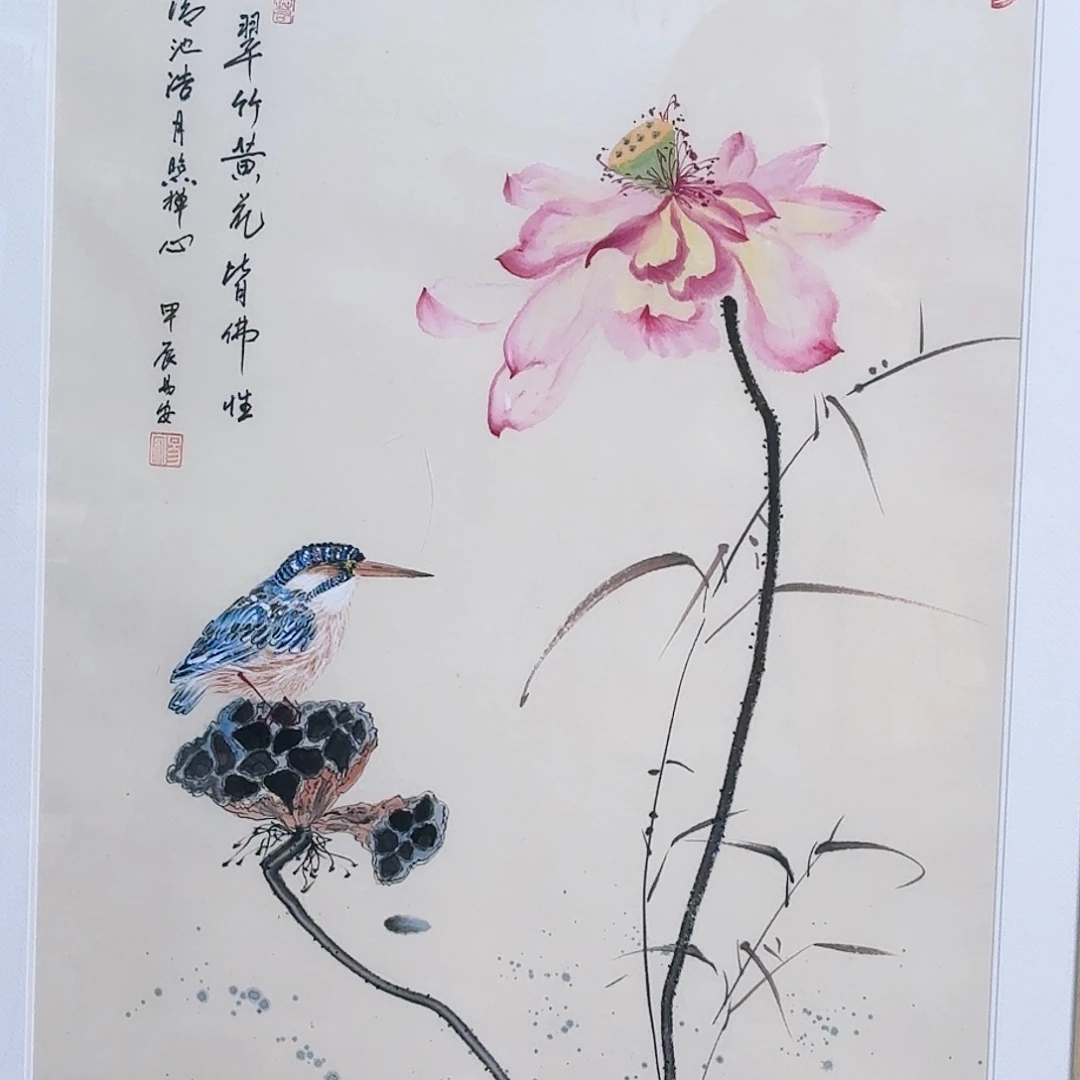 翠竹黄花皆佛性
清池浩月照禅心 甲辰易安